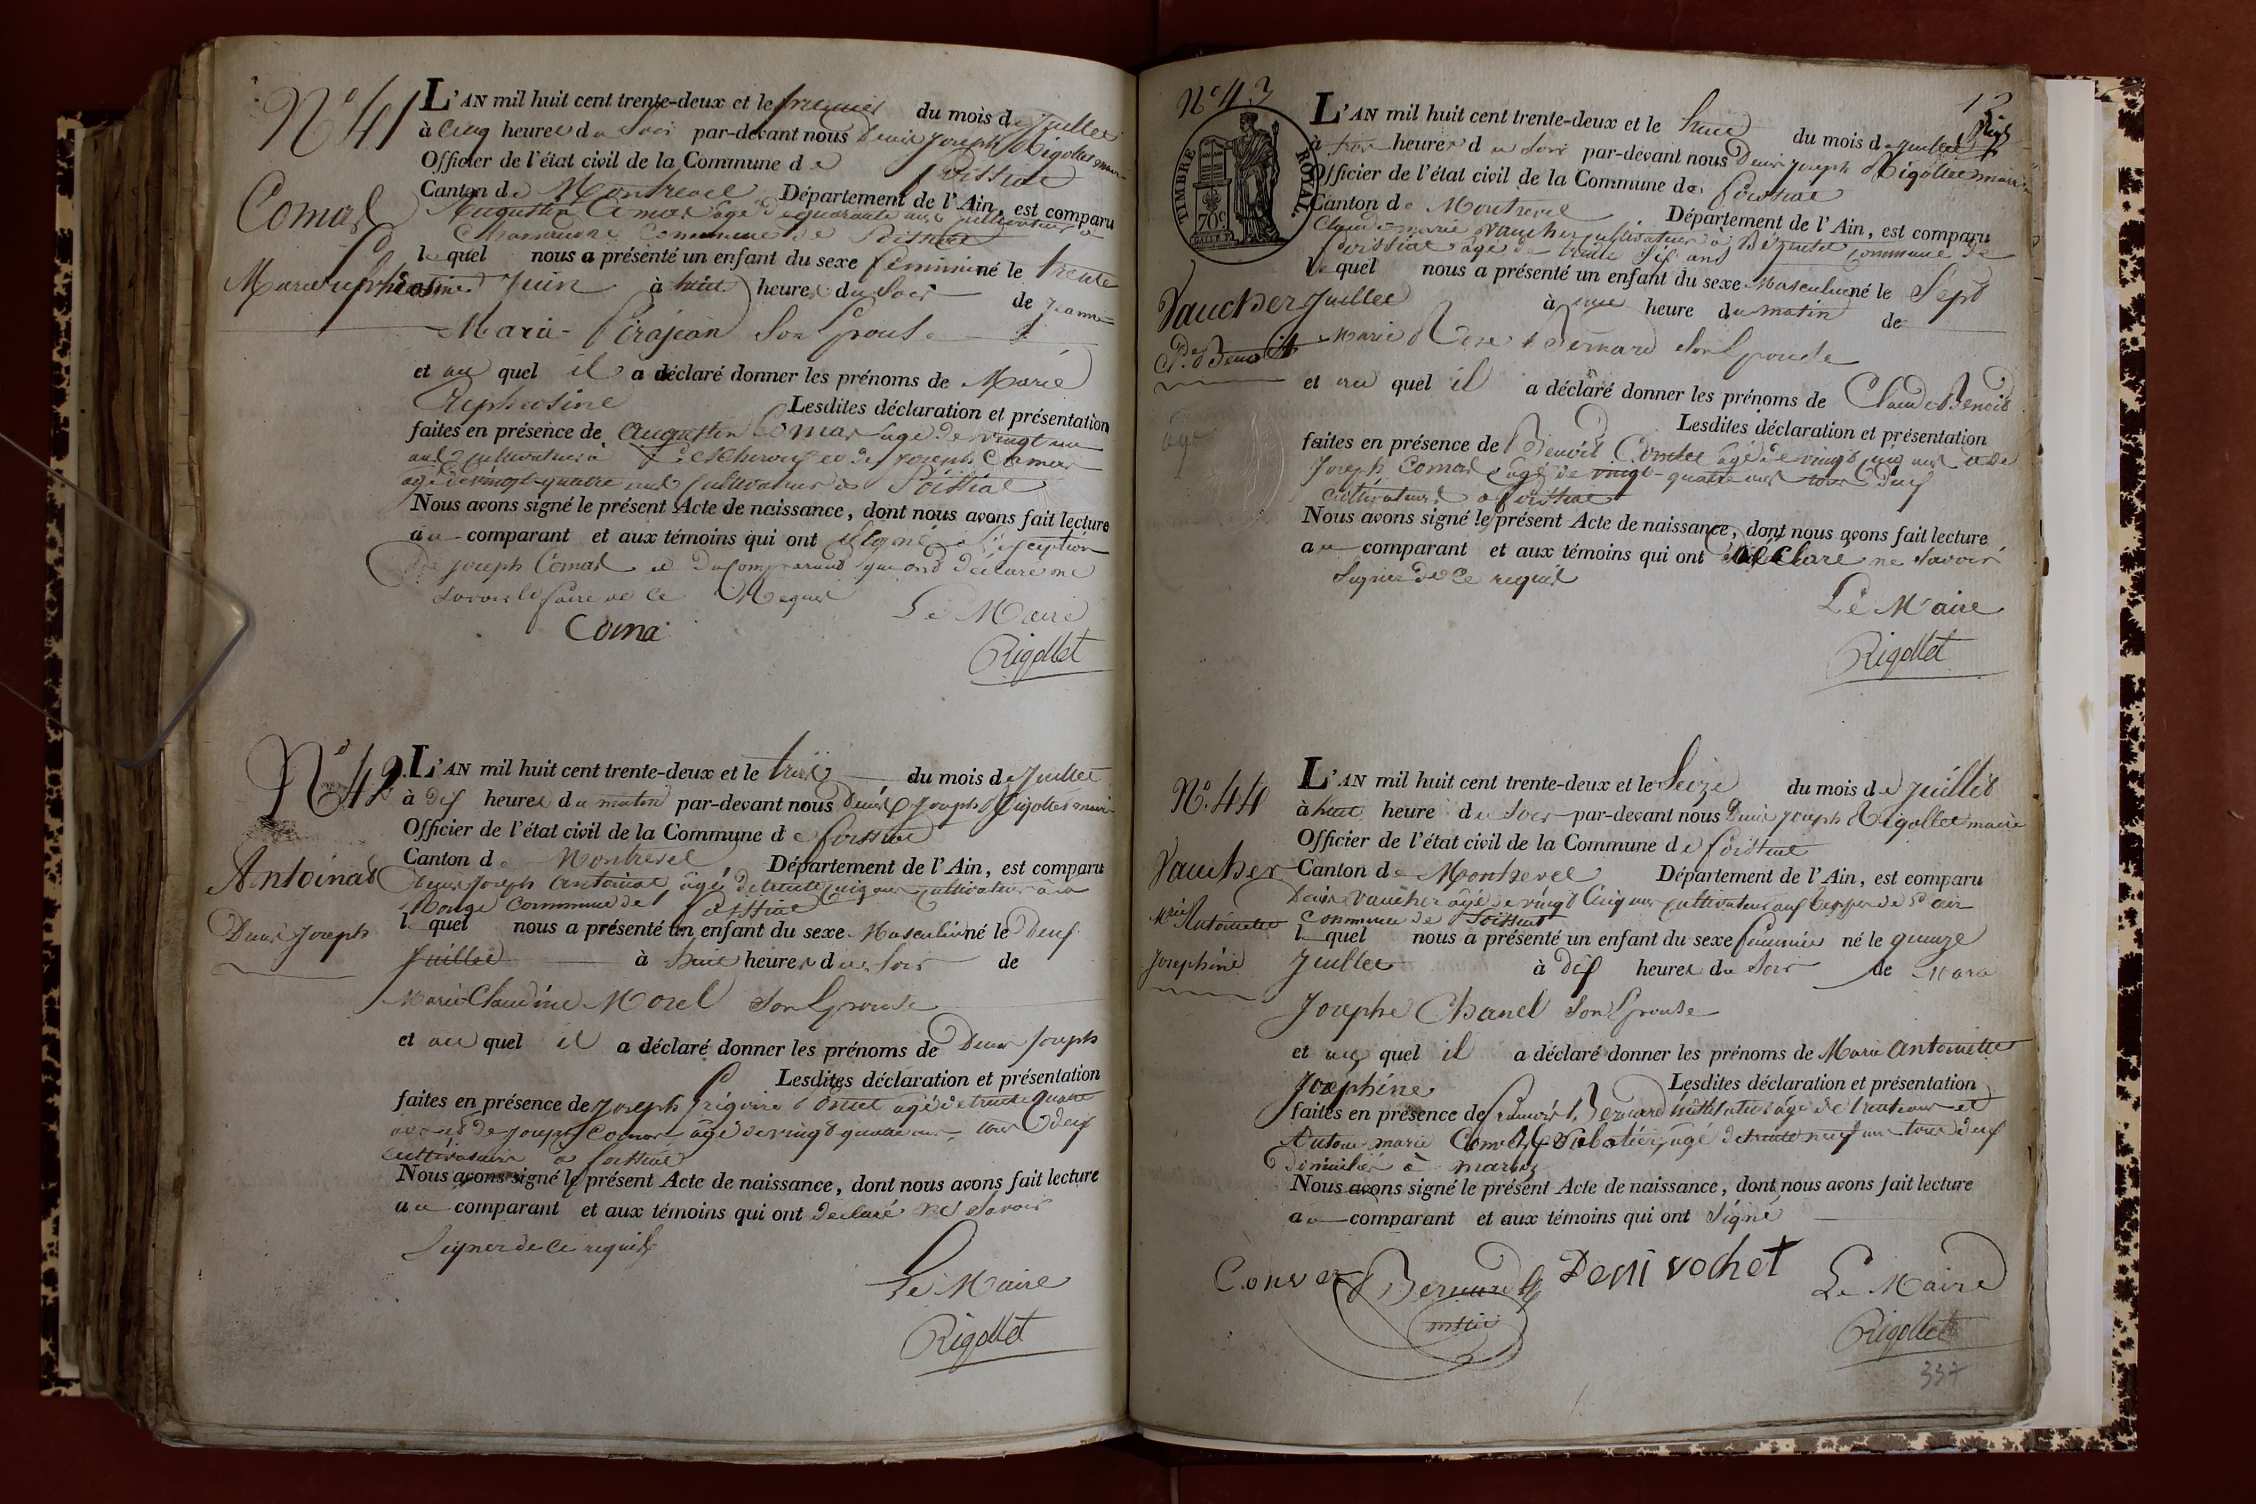 N° 41
L'AN mil huit cent trente-deux et le premier du mois de Juillet
à Cinq heures du Soir par-devant nous Denis Joseph Rigollet maire
Officier de l'état civil de la Commune de foissiat
Canton de Montrevel Département de l'Ain, est comparu
Comas
Augustin Comas agé de quarante ans Cultivateur à
commune de foissiat
lequel nous a présenté un enfant du sexe féminin né le trente
Marie
Juin à huit heures du Soir de Jeanne
Marie Pirajean Son Epouse
et au quel il a déclaré donner les prénoms de Marie
Lesdites déclaration et présentation
faites en présence de Augustin Comas agé de vingt un
ans Cultivateur à et de Joseph Comas
agé de vingt-quatre ans Cultivateur à foissiat
Nous avons signé le présent Acte de naissance, dont nous avons fait lecture
au comparant et aux témoins qui ont signé à l'exception
de Joseph Comas et du Comparant qui ont déclaré ne
Savoir le faire de ce Requis
Le Maire
Coma
Rigollet
N° 42
L'AN mil huit cent trente-deux et le trois du mois de Juillet
à dix heures du matin par-devant nous Denis Joseph Rigollet maire
Officier de l'état civil de la Commune de foissiat
Canton de Montrevel Département de l'Ain, est comparu
Antoinat
Denis Joseph Antoinat âgé de trente cinq ans cultivateur à la
Rouge Commune de foissiat
Denis Joseph
lequel nous a présenté un enfant du sexe Masculin né le deux
Juillet à huit heures du Soir de
Marie Claudine Morel Son Epouse
et au quel il a déclaré donner les prénoms de Denis Joseph
Lesdites déclaration et présentation
faites en présence de Joseph Grégoire agé de trente quatre
ans et de Joseph Comas âgé de vingt quatre ans tous deux
cultivateurs à foissiat
Nous avons signé le présent Acte de naissance, dont nous avons fait lecture
au comparant et aux témoins qui ont déclaré ne Savoir
Signer de ce requis
Le Maire
Rigollet
N° 43
TIMBRE ROYAL
70c
L'AN mil huit cent trente-deux et le huit du mois de Juillet
à heures du Soir par-devant nous Denis Joseph Rigollet maire
Officier de l'état civil de la Commune de foissiat
Canton de Montrevel Département de l'Ain, est comparu
Claude marie Vaucher cultivateur à commune de
foissiat agé de trente Six ans
lequel nous a présenté un enfant du sexe Masculin né le Sept
Vaucher
Juillet à une heure du matin de
Cde Benoit
Marie Rose Bernard Son Epouse
et au quel il a déclaré donner les prénoms de Claude Benoit
Lesdites déclaration et présentation
faites en présence de Benoit agé de vingt cinq ans et de
Joseph Comas agé de vingt-quatre ans tous deux
cultivateurs à foissiat
Nous avons signé le présent Acte de naissance, dont nous avons fait lecture
au comparant et aux témoins qui ont déclaré ne Savoir
Signer de ce requis
Le Maire
Rigollet
N° 44
L'AN mil huit cent trente-deux et le Seize du mois de Juillet
à huit heure du Soir par-devant nous Denis Joseph Rigollet maire
Officier de l'état civil de la Commune de foissiat
Vaucher
Canton de Montrevel Département de l'Ain, est comparu
Denis Vaucher âgé de vingt Cinq ans cultivateur
Marie Antoinette
Commune de foissiat
lequel nous a présenté un enfant du sexe féminin né le quinze
Joséphine
Juillet à dix heures du Soir de Marie
Josephe Chanel Son Epouse
et au quel il a déclaré donner les prénoms de Marie Antoinette
Joséphine Lesdites déclaration et présentation
faites en présence de françois Bernard âgé de trente ans et
Antoine marie Convert âgé de trente neuf ans tous deux
domiciliés à marboz
Nous avons signé le présent Acte de naissance, dont nous avons fait lecture
au comparant et aux témoins qui ont Signé
Convert Bernard Deni vochet Le Maire
Rigollet
337